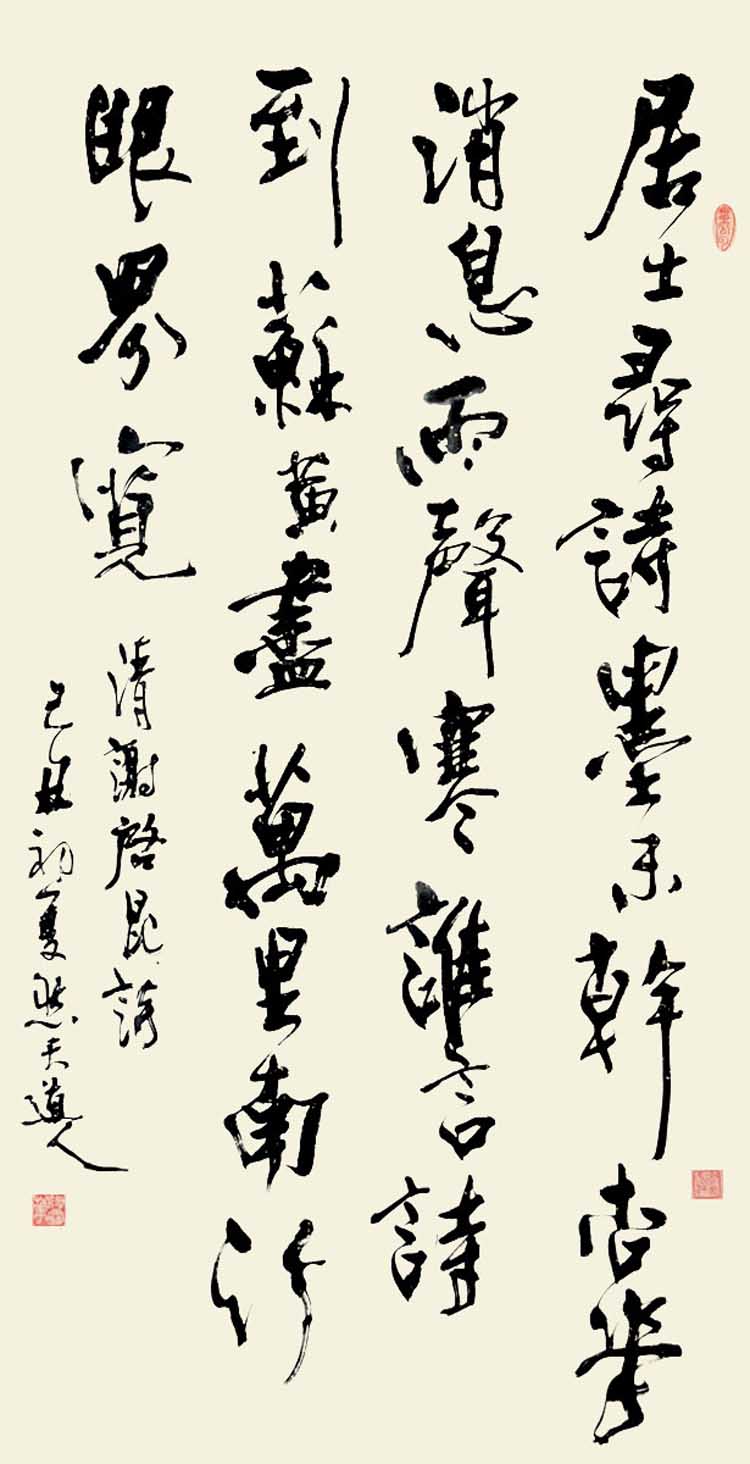 居士尋詩墨未幹杏花
消息雨聲寒誰言詩
到蘇黃盡萬里南行
眼界寬
清謝啓昆詩
己丑初夏然天道人